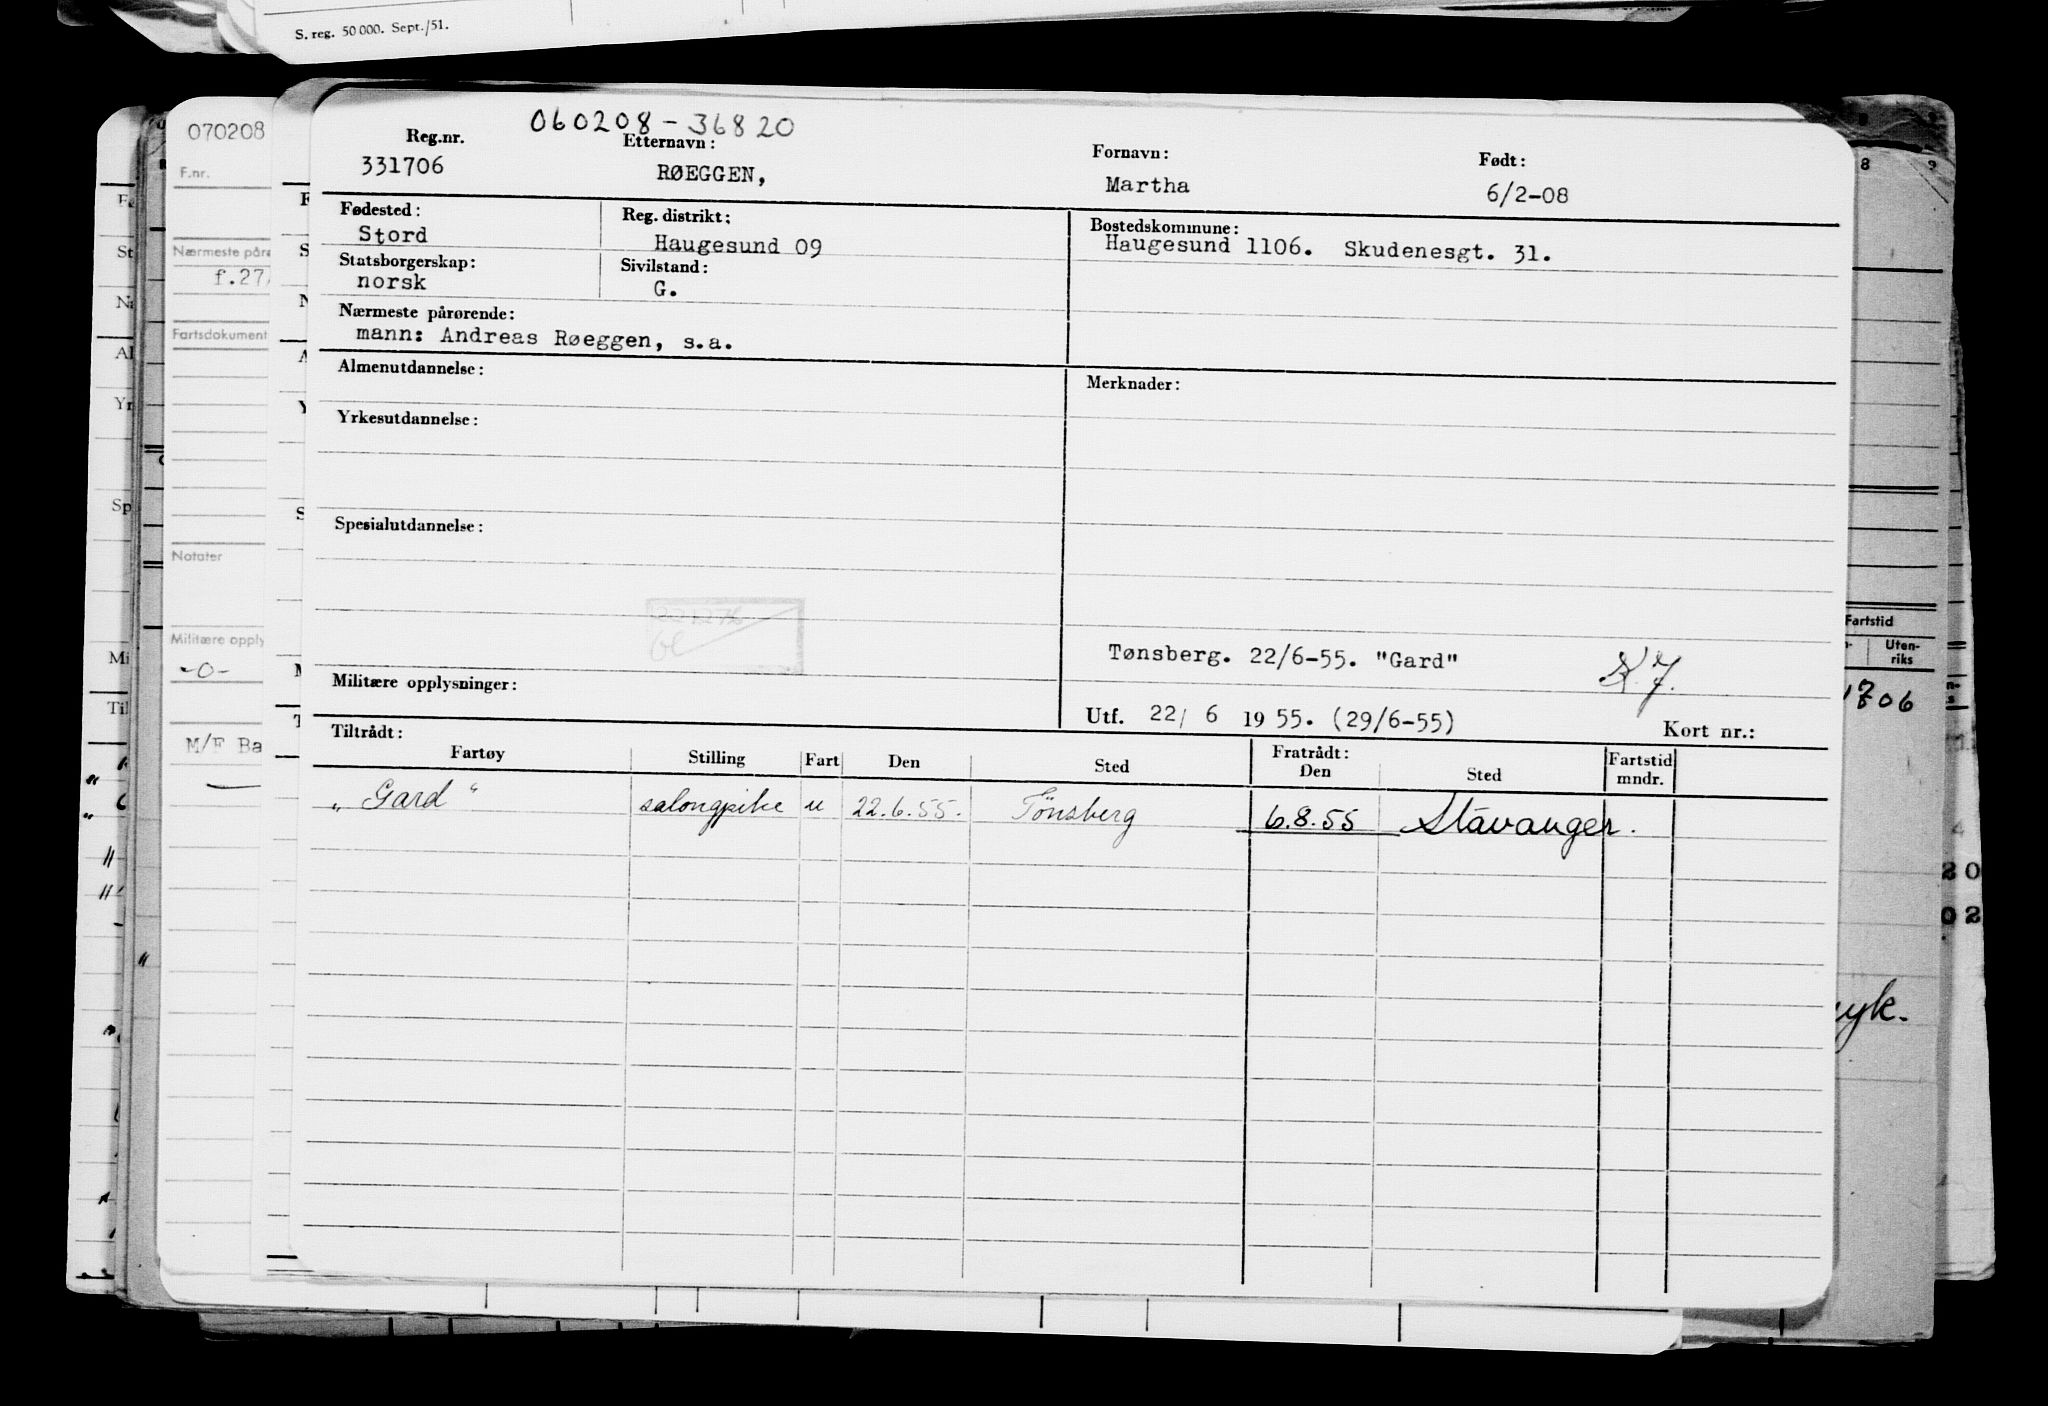 S. reg. 50 000. Sept./51.
070208
F.nr.
Nærmeste påre
f.27/
Fartsdokument
Notater
Militære opply
-0-
M/F Ba
060208-36820
Reg.nr. Etternavn: Fornavn: Født:
331706 RØEGGEN, Martha 6/2-08
Fødested: Reg. distrikt: Bostedskommune:
Stord Haugesund 09 Haugesund 1106. Skudenesgt. 31.
Statsborgerskap: Sivilstand:
norsk G.
Nærmeste pårørende:
mann: Andreas Røeggen, s.a.
Almenutdannelse: Merknader:
Yrkesutdannelse:
Spesialutdannelse:
Tønsberg. 22/6-55. "Gard" K7.
Militære opplysninger:
Utf. 22/ 6 19 55. (29/6-55) Kort nr.:
Tiltrådt: Fratrådt: Fartstid
Fartøy Stilling Fart Den Sted Den Sted mndr.
"Gard" salongpike u 22.6.55. Tönsberg 6.8.55 Stavanger.
Fartstid
Uten-
riks
1706
20
02
yk.